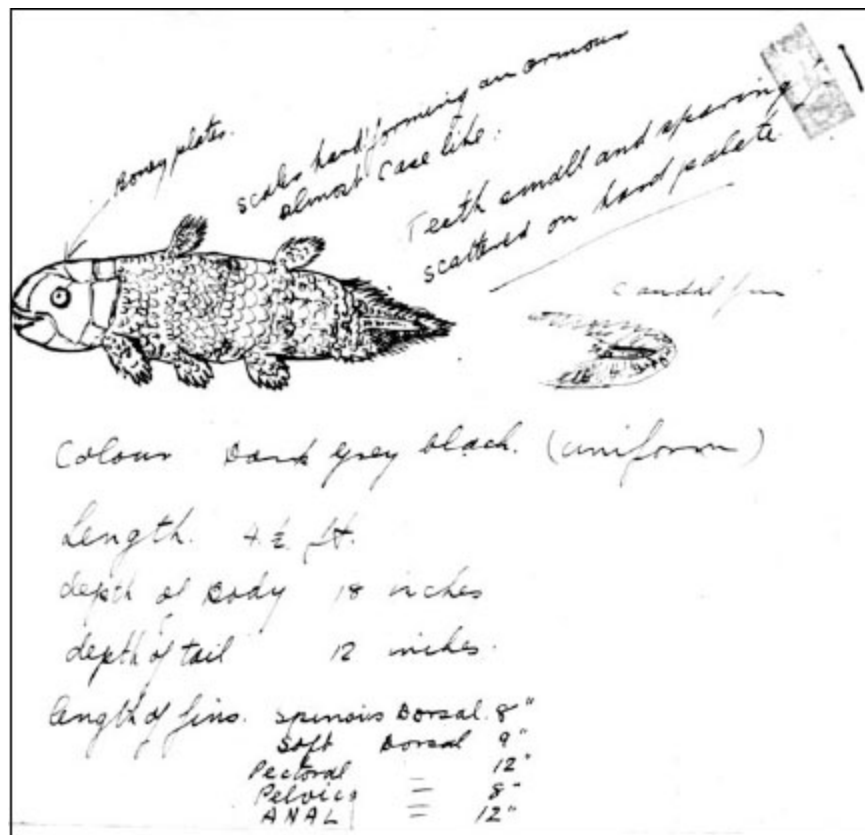 Boney plates.
scales hard forming an armour
almost case like.
Teeth small and sparing
scattered on hard palate
caudal fin
Colour Dark grey black. (uniform)
Length. 4 ½ ft.
depth of Body 18 inches
depth of tail 12 inches.
length of fins. Spinous Dorsal. 8"
Soft Dorsal 9"
Pectoral 12"
Pelvic = 8"
ANAL = 12"